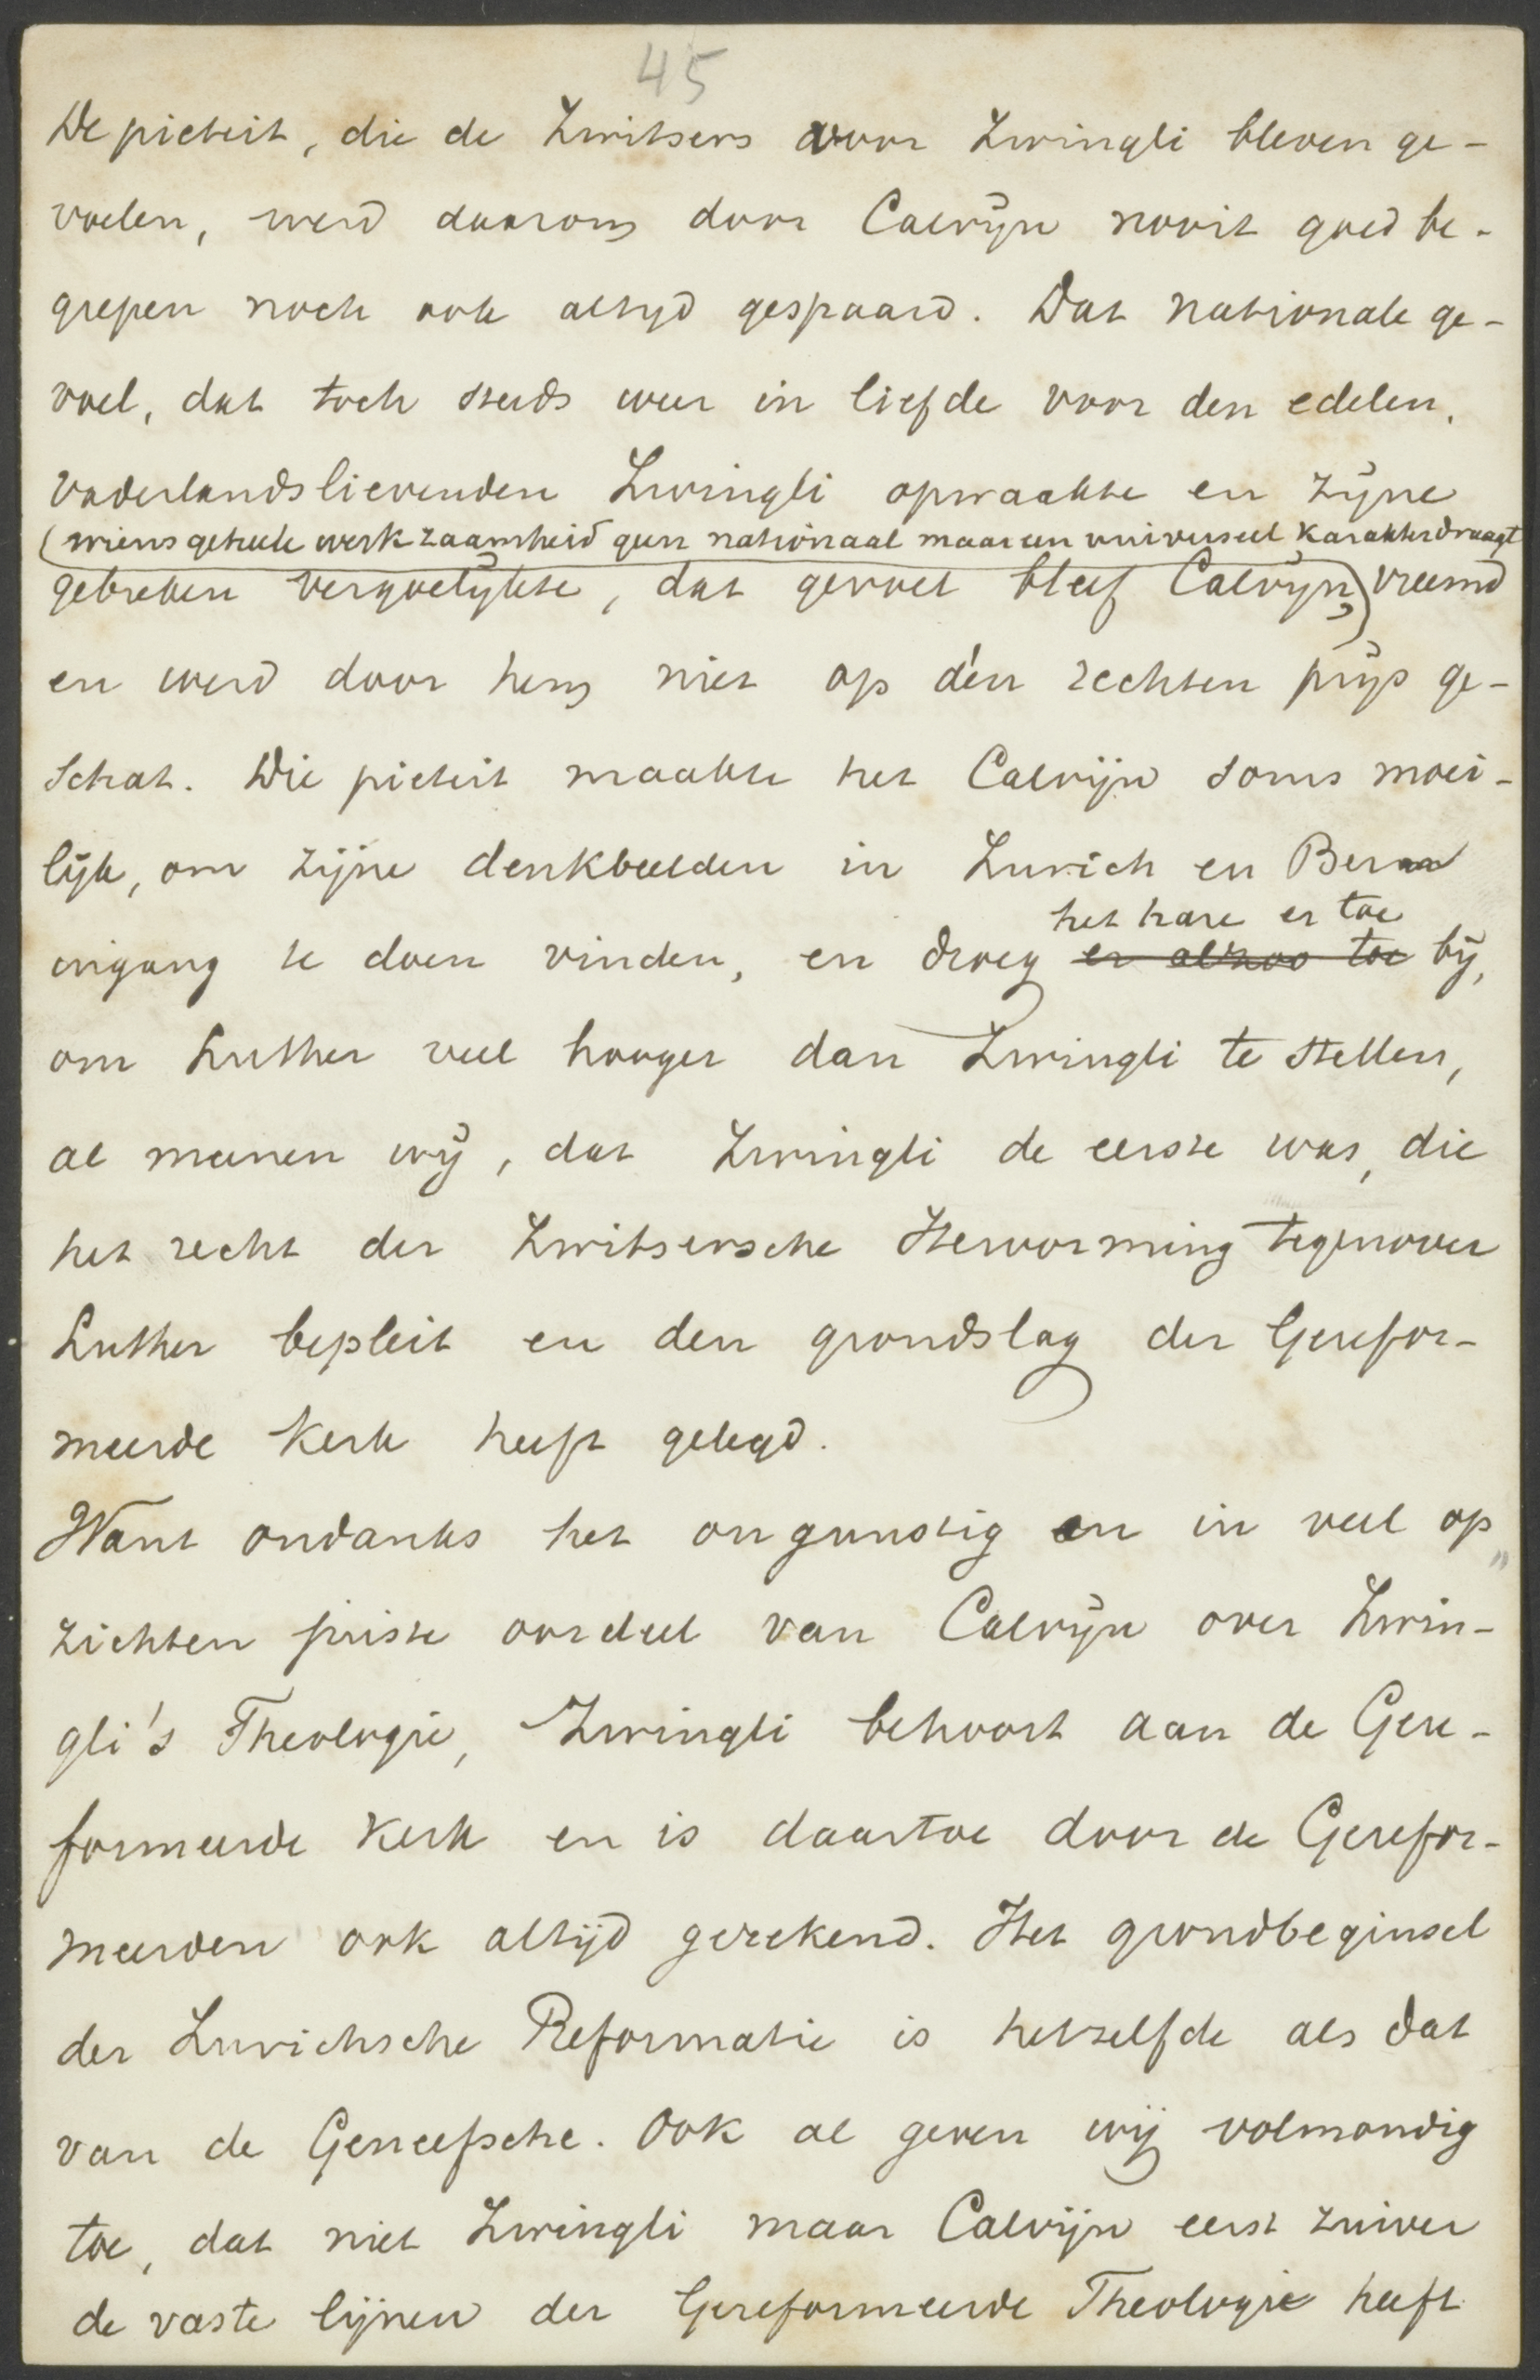 45
De pieteit, die de Zwitsers voor Zwingli bleven ge-
voelen, werd daarom door Calvijn nooit goed be-
grepen noch ook altijd gespaard. Dat nationale ge-
voel, dat toch steeds weer in liefde voor den edelen,
vaderlandslievenden Zwingli opwaakte en zijne
(wiens geheele werkzaamheid geen nationaal maar een universeel karakter draagt
gebreken vergoelijkte, dat gevoel bleef Calvijn,) vreemd
en werd door hem niet op dén rechten prijs ge-
schat. Die pieteit maakte het Calvijn soms moei-
lijk, om zijne denkbeelden in Zurich en Bern
ingang te doen vinden, en droeg er alzoo toe bij,
het hare er toe
om Luther veel hooger dan Zwingli te stellen,
al meenen wij, dat Zwingli de eerste was, die
het recht der Zwitsersche Hervorming tegenover
Luther bepleit en den grondslag der Gerefor-
meerde Kerk heeft gelegd.
Want ondanks het ongunstig en in veel op„
zichten juiste oordeel van Calvijn over Zwin-
gli's Theologie, Zwingli behoort aan de Gere-
formeerde Kerk en is daartoe door de Gerefor-
meerden ook altijd gerekend. Het grondbeginsel
der Zurichsche Reformatie is hetzelfde als dat
van de Geneefsche. Ook al geven wij volmondig
toe, dat niet Zwingli maar Calvijn eerst zuiver
de vaste lijnen der Gereformeerde Theologie heeft